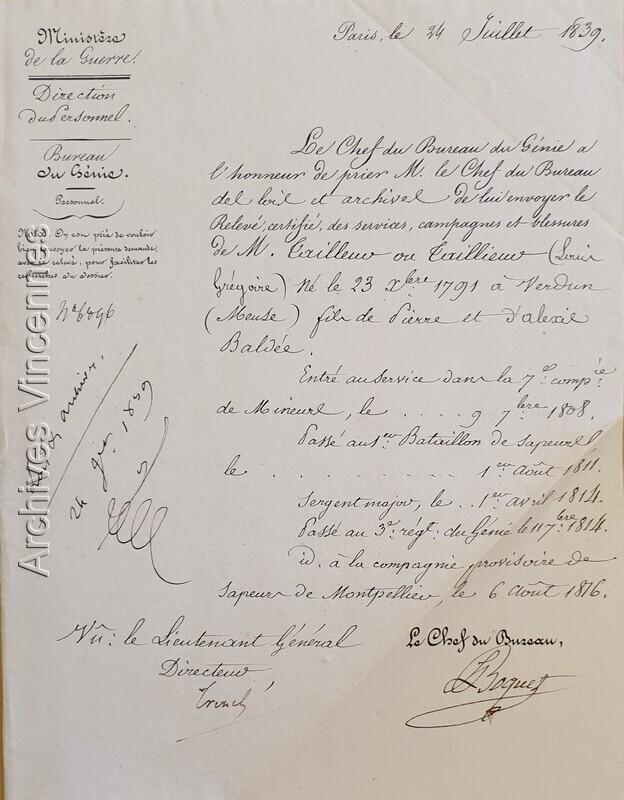 Ministère
de la Guerre.
Direction
du Personnel.
Bureau
du Génie.
Personnel.
Nota. On est prié de vouloir
bien renvoyer la présente demande
avec le relevé, pour faciliter les
recherches du dossier.
No 6896
24
1839
Paris, le 24 Juillet 1839.
Le Chef du Bureau du Génie a
l'honneur de prier M. le Chef du Bureau
des lois et archives de lui envoyer le
Relevé, certifié, des services, campagnes et blessures
de M. Tailleur ou Taillieur (Louis
Grégoire) Né le 23 Xbre 1791 à Verdun
(Meuse) fils de Pierre et d'alexis
Baldée.
Entré au service dans la 7e compie
de Mineurs, le . . . . 9 7bre 1808.
Passé au 1er Bataillon de Sapeurs
le . . . . . . . . . . 1er Août 1811.
Sergent major, le . . 1er avril 1814.
Passé au 3e régt du Génie le 11 7bre 1814.
id. à la compagnie provisoire de
Sapeurs de Montpellier, le 6 Août 1816.
Vu: le Lieutenant Général
Directeur
Le Chef du Bureau,
Archives Vincennes